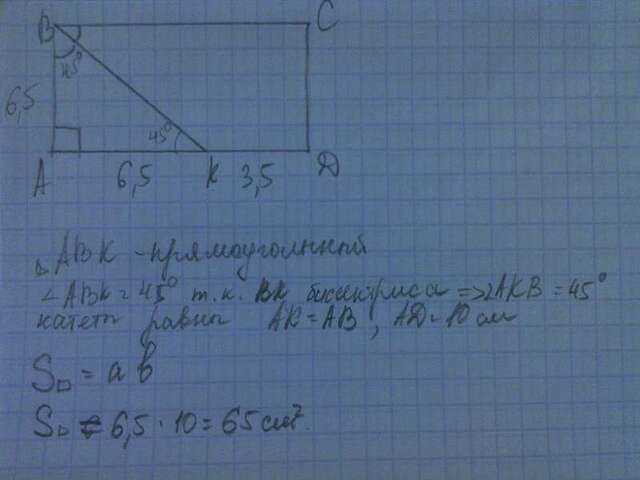 B C
45°
6,5
45°
A 6,5 K 3,5 D
△ ABK - прямоугольный
∠ABK = 45° т.к. BK биссектриса => ∠AKB = 45°
катеты равны AK = AB, AD = 10 см
S▭ = a b
S▭ = 6,5 · 10 = 65 см²